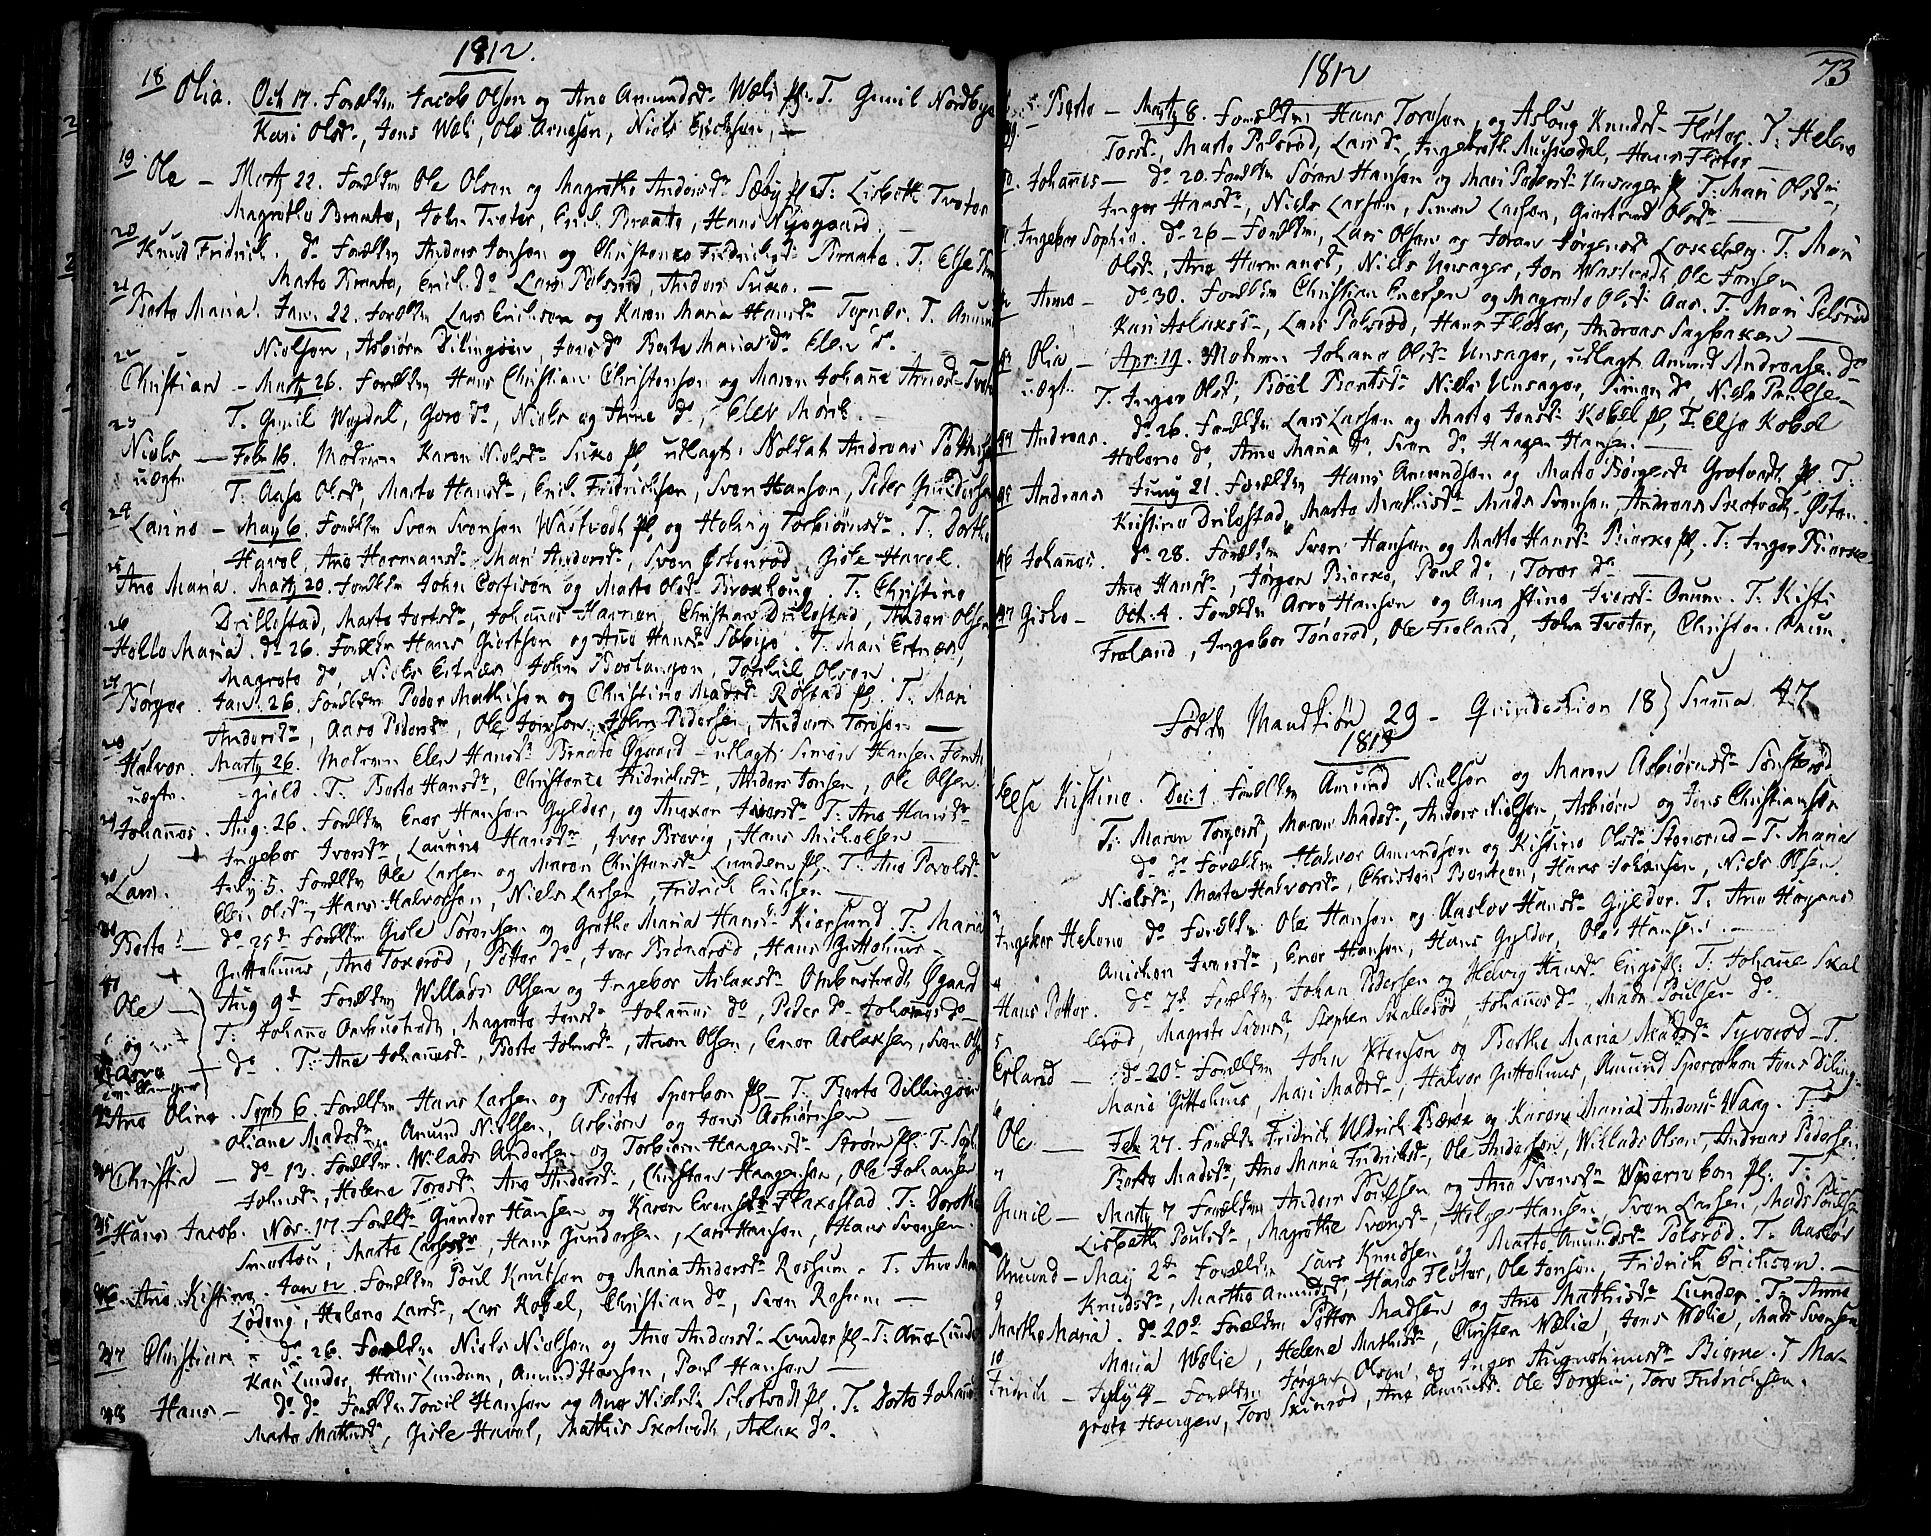 1812.
18 Olia. Oct 17. Forældre Jacob Olsen og Ane Amundsd. Wæli pl. T. Gunil Nordbye
Kari Olsd., Jens Wæli, Ole Arnesen, Niels Erichsen,
19 Ole – Martz 22. Forældre Ole Olsen og Magrethe Andersd. Sæby pl. T. Lisbeth Tveter
Magrethe Braate, John Tveter, Eric Braate, Hans Nygaard. –
20 Knud Fridrich. do. Forældre Anders Jonsen og Christence Fridrichsd. Braate. T. Else
Marte Braate, Eric do. Lars Pelsrød, Anders Suxe. –
21 Berte Maria. Janv. 22. Forældre Lars Erichsen og Karen Maria Hansd. Tegnær. T. Amund
Nielsen, Asbiørn Dilingøen, Jens do Berte Maria do. Elen do. –
22 Christian – Martz 26. Forældre Hans Christian Christensen og Maren Johanne Arnesd.
T. Gunil Wægdal, Goro do, Niels og Anne do, Elev Mørk. –
23 Niels uægte – Febr 16. Moderen Karen Nielsd. Suxe pl, udlagt: Soldat Andreas
T. Aase Olsd., Marte Hansd., Eric Fridrichsen, Sven Hansen, Peder Gundersen
24 Laurine – May 6. Forældre Sven Svensen Wastvedt pl, og Helvig Torbiørnsd. T. Dorthe
Havel, Ane Hermansd., Mari Andersd., Sven Østenrød, Gisle Havel.
25 Ane Maria. Martz 20. Forældre John Corfison og Marte Olsd. Broxhoug. T. Christine
Drillestad, Marte Jortsd., Johannes Haurien, Christian Drillestad, Anders Olsen
26 Helle Maria. do. 26. Forældre Hans Giertsen og Ane Hansd. Sæbye. T. Mari Eitnæs,
Magrete do, Niels Eitnæs, John Berlangen, Torkil Olsen.
27 Børge. Jan. 26. Forældre Peder Mathisen og Christine Madsd. Rølstad pl. T. Mari
Andersd., Aare Pedersd., Ole Jonsen, John Pedersen, Anders Toresen –
28 Halvor uægte. Martz 26. Moderen Elen Hansd. Braate Øgaard – udlagt Simon Hansen
gield. T. Berte Hansd., Christence Fridrichsd., Anders Jonsen, Ole Olsen
29 Johannes. Aug. 26. Forældre Ener Hansen Gylder, og Aneken Iversd. T. Ane Hansd.
Ingebor Iversd., Laurine Hansd., Iver Brevig, Hans Michelsen –
30 Lars. July 5. Forældre Ole Larsen og Maren Christensd. Lundem pl. T. Ane Povelsd.
Elin Olsd., Hans Halvorsen, Niels Larsen, Fridrich Erichsen –
Berte – do 25de Forældre Gisle Sørensen og Grethe Maria Hansd. Kiersund. T. Maria
Guttolmus, Ane Toxerød, Petter do, Iver Biønnerød, Hans Guttolmus –
Ole – Aug 9d Forældre Willads Olsen og Ingebor Aslaksd. Ombustvedt Øgaard
T. Johanne Ombustvedt, Magrete Jonsd. Johannes do, Peder do. Johannes do –
Arve Tvillinger – do. T: Ane Johannesd., Berte Johnsd., Aron Olsen, Ener Aslaksen, Sven Olsen
Ane Oline. Septb 6. Forældre Hans Larsen og Berte Sperbon pl. T. Berte Dillingøen
Oliane Madsd., Amund Nielsen, Asbiørn og Jens Asbiørnsen –
Christia – do. 13. Forældre Willads Andersen og Torbiør Haagensd. Strøm pl. T.
Johnsd., Helene Toresd. Ane Andersd., Christen Haagensen, Ole Johansen
35 Hans Jacob. Nov. 17. Foræld. Gunder Hansen og Karen Evensd. Flaxestad. T. Dorthe
Smertu, Marte Larsesd., Hans Gundersen, Lars Hansen, Hans Svensen
36 Ane Kistine. Jan 12. Forældre Poul Knutsen og Maria Andersd. Rossum. T. Ane
Lødeng, Helene Larsd., Lars Kobel, Christian do, Sven Rosum –
37 Christian – do. 26. Forældre Niels Nielsen og Ane Andersd. Lunder pl. T. Ane Lunder
Kari Lunder, Hans Lundum, Amund Hansen, Poul Hansen –
38 Hans – do. do. Forældre Torril Hansen og Ane Nielsd. Schotvedt pl. T. Dorte Johannes
Marte Mathisd., Gisle Havel, Mathis Skotvedt, Aslak do.
1812
73
39 Berte – Martz 8. Forældre Hans Toresen, og Aslaug Knudsd. Fløter. T. Helene
Toresd., Marte Pelsrød, Lars do., Ingebreth Muchedal, Hans Fløter –
40. Johannes – do. 20. Forældre Søren Hansen og Mari Pedersd. Unsager pl. T. Mari Olsd.,
Inger Hansd., Niels Larsen, Simen Larsen, Giertrud Olsd.
41 Ingebor Sophia. do. 26 – Forældre, Lars Olsen og Joran Jørgensd. Loxeberg. T. Mari
Olsd., Ane Hermansd., Niels Unsager, Jon Wastvedt, Ole Jonsen
42 Anne – do. 30. Forældre Christian Enersen og Magrete Olsd. Aas. T. Mari Pelsrød
Kari Aslaksd., Lars Pelsrød, Hans Fløter, Andreas Sagbaken –
43 Olia uægt. – Apr. 19. Moderen Johane Olsd. Unsager, udlagt Amund Andreasen do
T. Inger Olsd., Boel Berthsd. Niels Unsager, Simen do, Niels Paulsen
44 Andreas. do. 26. Forældre Lars Larsen og Marte Jonsd. Kobel pl, T. Else Kobel
Helene do, Ane Maria do, Sven do. Haagen Hansen –
45 Andreas Juny 21. Forældre Hans Amundsen og Marte Børgesd. Grotvedt pl. T:
Kristine Drilestad, Marte Mathisd. Mads Svensen, Andreas Skotvedt
46 Johannes. do. 28. Forældre Sven Hansen og Marte Hansd. Bierke pl. T. Inger Bierke
Ane Hansd., Jørgen Bierke, Poul do., Torer do
47 Gisle – Oct. 4. Forældre Arve Hansen og Ane Stine Iversd. Onum. T. Kisti
Froland, Ingebor Tønerød, Ole Froland, John Tveter, Christen Onum.
Fødte Mandkiøn 29 – Qvindekiøn 18 } Summa 47
1813
Else Kistine. Dec. 1. Forældre Amund Nielsen og Maren Asbiørnsd. Sønsterød
T: Maren Torgersd., Maren Madsd., Anders Nielsen, Asbiørn og Jens Christiansen
2 do. do. Forældre Halvor Amundsen og Kistine Olsd. Stenerud – T. Maria
Nielsd., Marte Halvorsd., Christen Bentzen, Hans Johansen, Niels Olsen.
3 Ingebor Helene do. Forældre Ole Hansen og Aaslov Hansd. Gylder. T. Ane Hougens
Aniken Iversd., Ener Hansen, Hans Gylder, Ole Hansen. –
4 Hans Petter. do. 7d. Forældre Johan Pedersen og Helvig Hansd. Engs pl. T: Johanne Skal
lerød, Magrete Svensd., Stephen Skallerød, Johannes do, Mads Poulsen do.
5 Erland – do. 20d. Forældre John Stensen og Berthe Maria Madsd. Syverød – T.
Marie Guttolmus, Mari Madsd., Halvor Guttolmus, Amund Sperrebon Jens Diling.
6 Ole – Feb 27. Forældre Fridrich Uldrich Bærøe og Karen Maria Andersd. Waag. T.
Berte Madsd., Ane Maria Fridrichsd., Ole Andersen, Willads Olsen, Andreas Pedersen.
7 Gunil – Martz 7 Forældre Anders Poulsen og Ane Svensd. Wperrebon pl. T.
Lisbeth Poulsd., Magrethe Svensd., Helge Hansen, Sven Larsen, Mads Poulsen
Amund – May 2d. Forældre Lars Knudsen og Marte Amundsd. Pelsrød. T. Aaslov
Knudsd., Marthe Amundsd., Hans Fløter, Ole Jonsen, Fridrich Erichsen. –
9 Marthe Maria. do. 20d. Forældre Petter Madsen og Ane Mathisd. Lunder. T. Anne
Maria Wælie, Helene Mathisd., Christen Wælie, Jens Wælie, Mads Svensen
10 Fridrich – July 4 – Forældre Jørgen Olsen og Inger Augustinusd. Bierne. T. Ma-
grete Haugen, Tore Skinrød, Ane Amundsd. Ole Torgersen, Tore Fridrichsen.